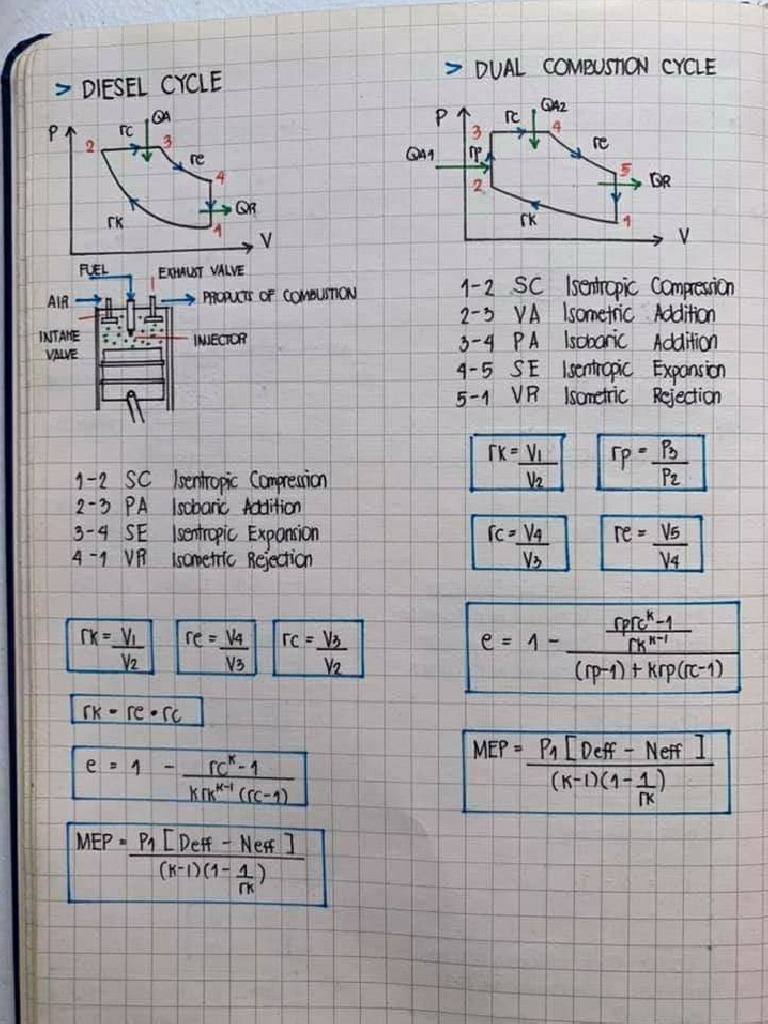 > DIESEL CYCLE
P
rc
QA
2
3
re
4
QR
rk
1
V
FUEL
EXHAUST VALVE
AIR
PRODUCTS OF COMBUSTION
INTAKE
VALVE
INJECTOR
1-2 SC Isentropic Compression
2-3 PA Isobaric Addition
3-4 SE Isentropic Expansion
4-1 VR Isometric Rejection
rk = V1/V2
re = V4/V3
rc = V3/V2
rk = re • rc
e = 1 - (rc^k - 1)/(k rk^(k-1) (rc-1))
MEP = P1 [Deff - Neff]/((k-1)(1 - 1/rk))
> DUAL COMBUSTION CYCLE
P
rc
QA2
3
4
QA1
rp
re
5
2
QR
rk
1
V
1-2 SC Isentropic Compression
2-3 VA Isometric Addition
3-4 PA Isobaric Addition
4-5 SE Isentropic Expansion
5-1 VR Isometric Rejection
rk = V1/V2
rp = P3/P2
rc = V4/V3
re = V5/V4
e = 1 - ((rp rc^k - 1)/(rk^(k-1)))/((rp-1) + k rp (rc-1))
MEP = P1 [Deff - Neff]/((k-1)(1 - 1/rk))